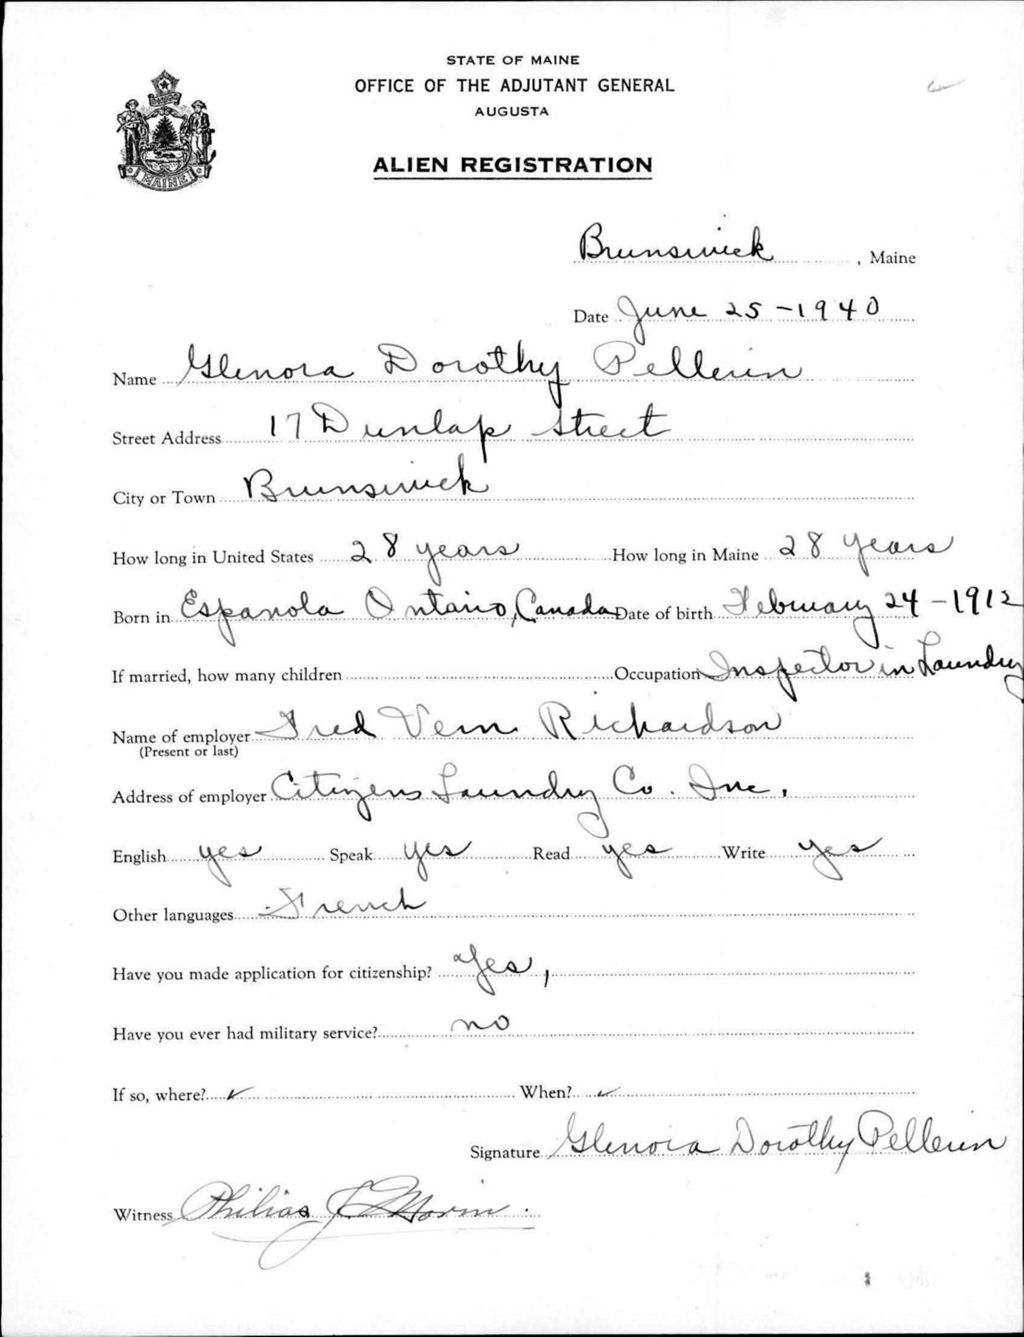 STATE OF MAINE
OFFICE OF THE ADJUTANT GENERAL
AUGUSTA
ALIEN REGISTRATION
MAINE
Brunswick, Maine
Date June 25-1940
Name Glenora Dorothy Pellerin
Street Address 17 Dunlap Street
City or Town Brunswick
How long in United States 28 years How long in Maine 28 years
Born in Espanola Ontario, Canada Date of birth February 24-1912
If married, how many children Occupation Inspector in Laundry
Name of employer Fred Vern Richardson
(Present or last)
Address of employer Citizens Laundry Co. Inc.
English yes Speak yes Read yes Write yes
Other languages French
Have you made application for citizenship? Yes,
Have you ever had military service? no
If so, where? ✓ When? ✓
Signature Glenora Dorothy Pellerin
Witness Philias J Morin.